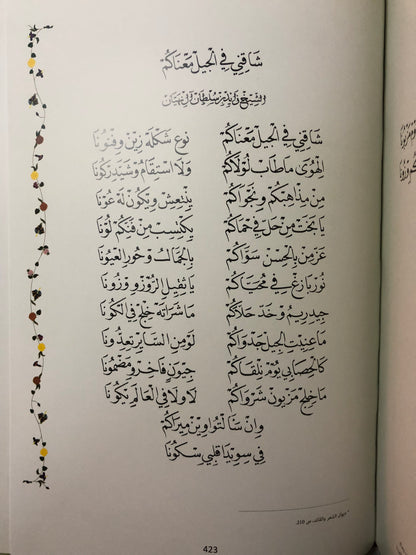 شَاقِني في الجيل مَعْنَاكُم
الشيخ زايد بن سلطان آل نهيان
شَاقِني في الجيل مَعْنَاكُم نوع شَكْلَه زين وفنُونَا
الهوى ما طاب لولاكم ولا استقام وشَيَّد ركونا
من مذاهبكم ونخواكم بِنْتعِش ويكون له عونا
يا بخت من حل في حماكم يكتسب من فنكم لونا
عز من بالحسن سواكم بالجمال وحور العيونا
نور بازغ في محياكم يا ثقيل الروز وزونا
جيدريم وخد حلاكم ما شراته خلج في الكونا
ما عنيت الجيل حدواكم لو من الساير تعذونا
كالحصابي يوم نلقاكم جيون فاخر ومضمونا
ما خلج مزيون شرواكم لا ولا في العالم يكونا
وان سالتوا وين ميراكم
في سويدا قلبي سكونا
* ديوان الشعر والقائد، ص 210.
423